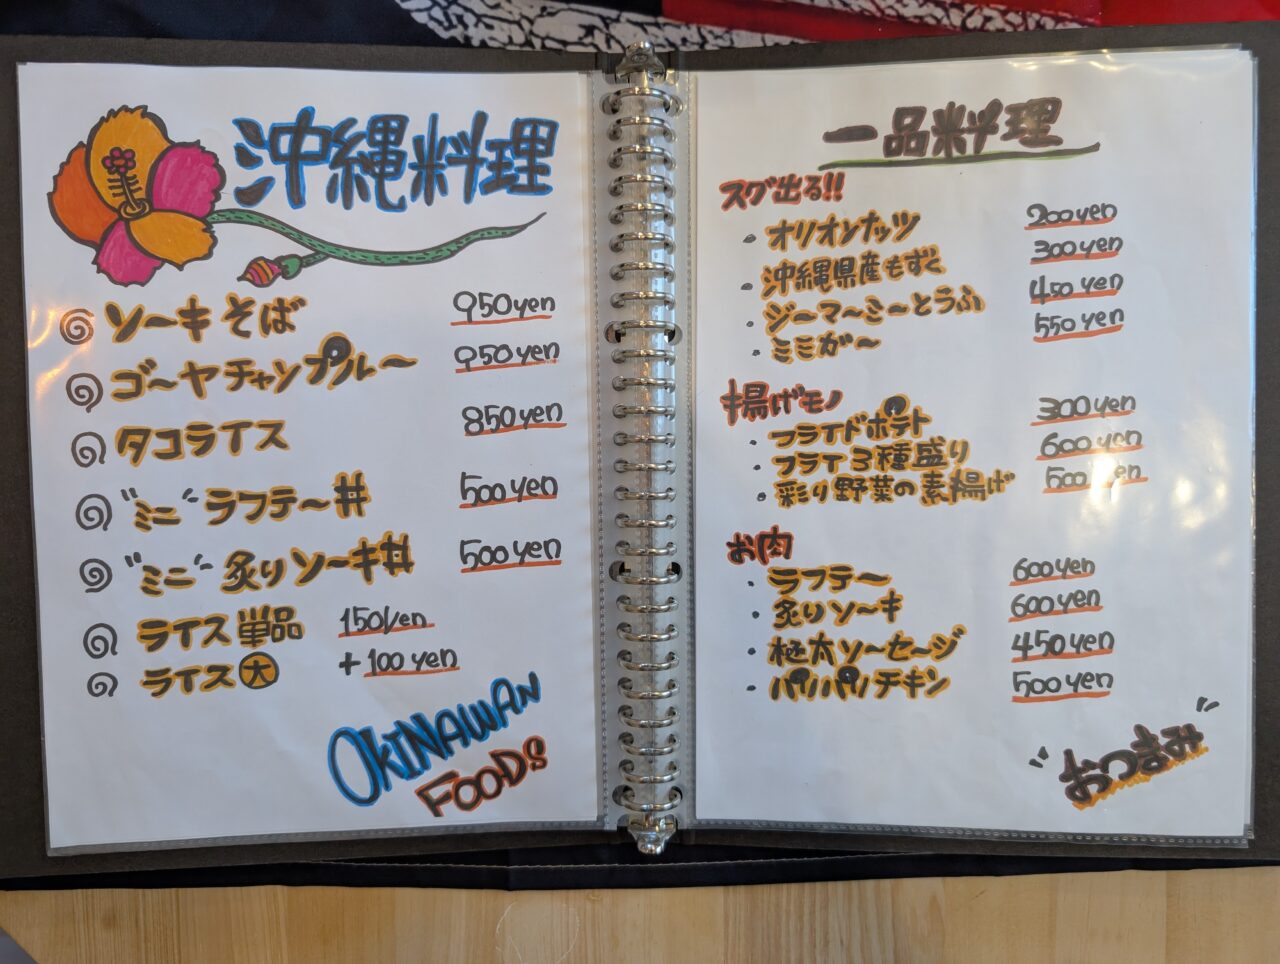 沖縄料理
ソーキそば 950yen
ゴーヤチャンプルー 950yen
タコライス 850yen
"ミニ" ラフテー丼 500yen
"ミニ" 炙りソーキ丼 500yen
ライス単品 150yen
ライス大 +100yen
OKINAWAN
FOODS
一品料理
スグ出る!!
・オリオンナッツ 200yen
・沖縄県産もずく 300yen
・ジーマーミーとうふ 450yen
・ミミガー 550yen
揚げモノ
・フライドポテト 300yen
・フライ3種盛り 600yen
・彩り野菜の素揚げ 500yen
お肉
・ラフテー 600yen
・炙りソーキ 600yen
・極太ソーセージ 450yen
・パリパリチキン 500yen
おつまみ